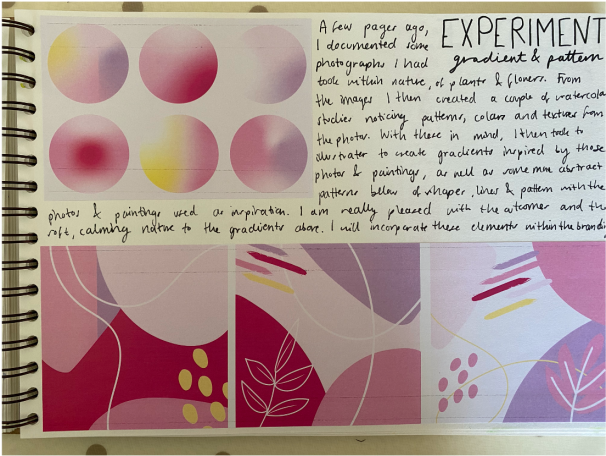 EXPERIMENT
gradient & pattern
A few pages ago,
I documented some
photographs I had
took within nature, of plants & flowers. From
the images I then created a couple of watercolour
studies noticing patterns, colours and textures from
the photos. With these in mind, I then took to
illustrator to create gradients inspired by these
photos & paintings, as well as some more abstract
patterns below of shapes, lines & pattern with the
photos & paintings used as inspiration. I am really pleased with the outcomes and the
soft, calming nature to the gradients above. I will incorporate these elements within the